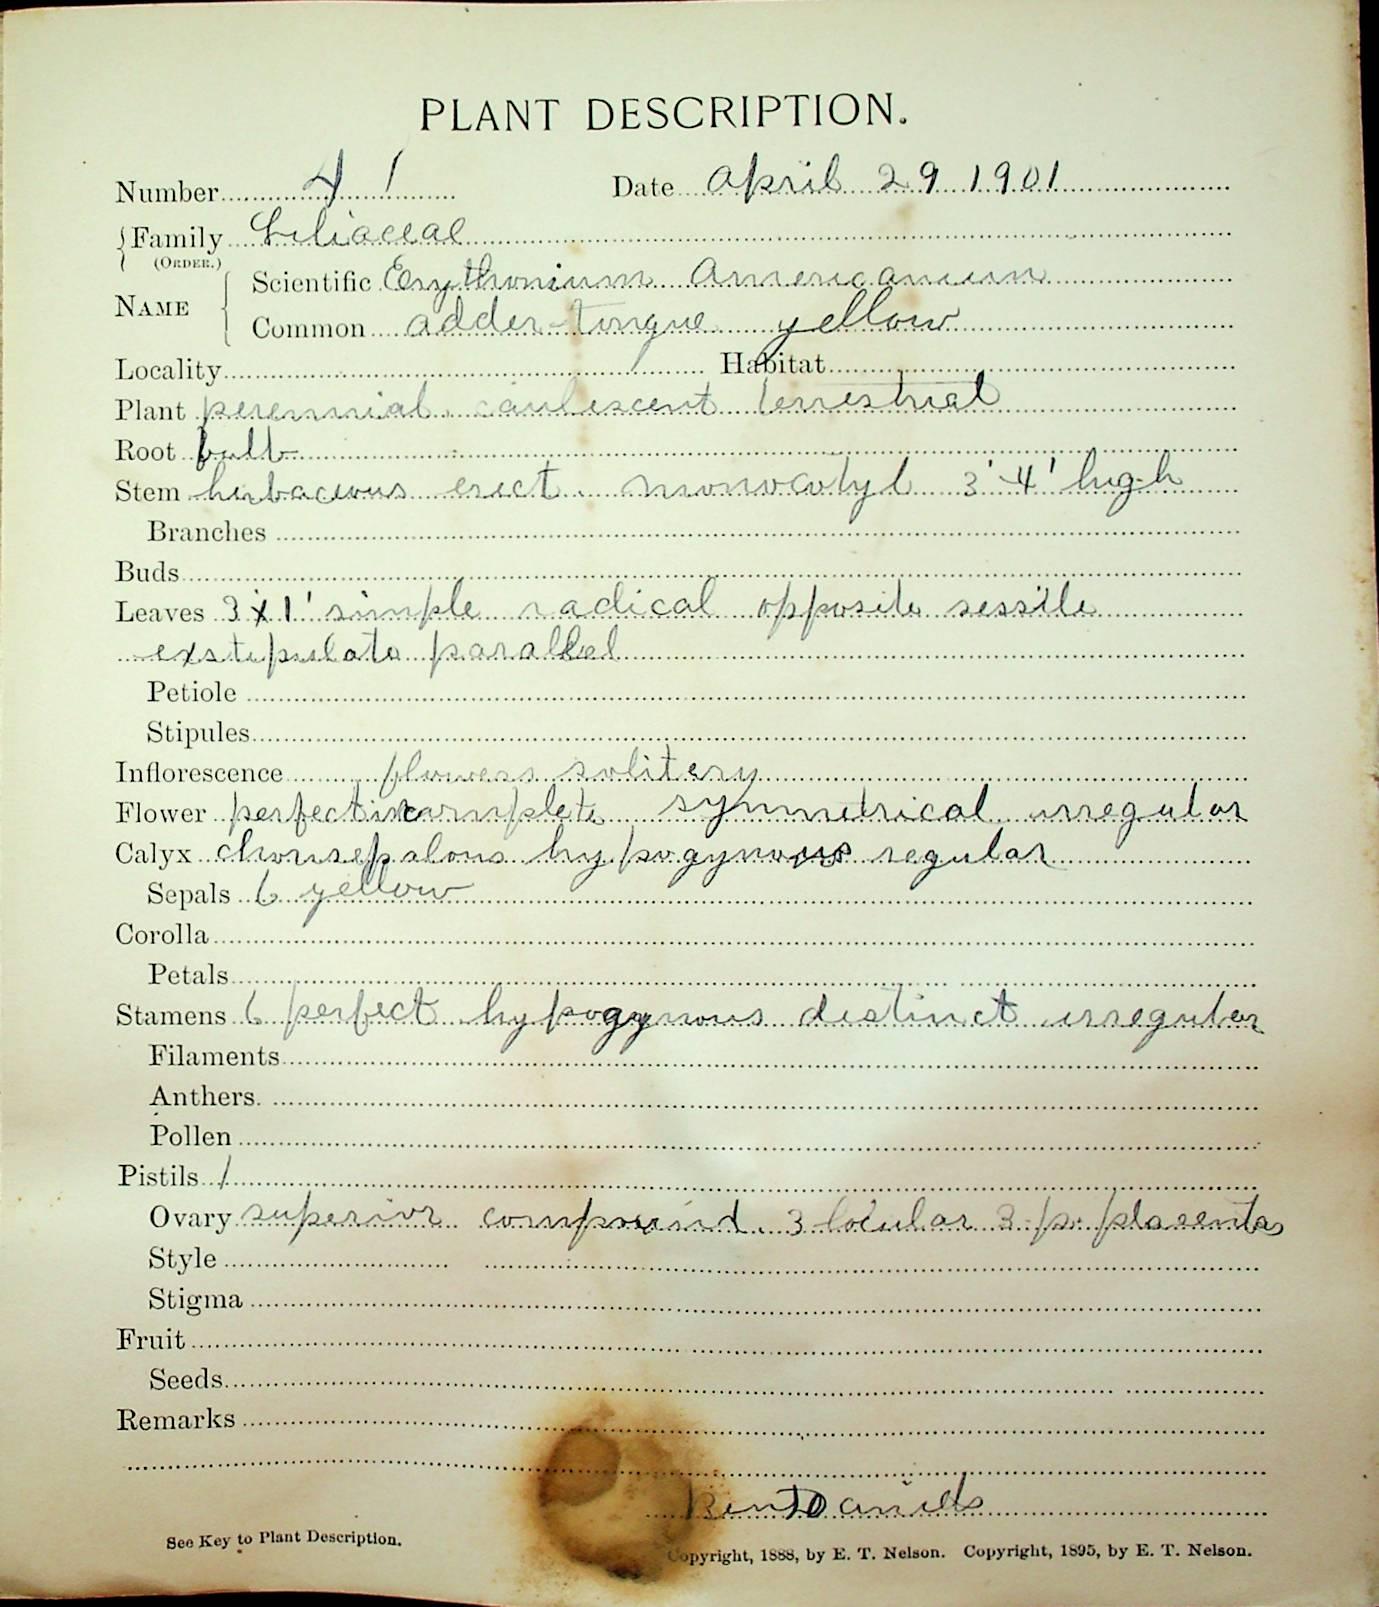 PLANT DESCRIPTION.
Number 41 Date April 29 1901
Family Liliaceae
(ORDER.)
NAME
Scientific Erythronium Americanum
Common adder-tongue yellow
Locality Habitat
Plant perennial caulescent terrestrial
Root bulb
Stem herbaceous erect monocotyl 3' 4' high
Branches
Buds
Leaves 3' x 1' simple radical opposite sessile
exstipulate parallel
Petiole
Stipules
Inflorescence flowers solitery
Flower perfect incomplete symmetrical irregular
Calyx chorisepalous hypogynous regular
Sepals 6 yellow
Corolla
Petals
Stamens 6 perfect hypogynous distinct irregular
Filaments
Anthers.
Pollen
Pistils 1
Ovary superior compound 3 locular 3 p. placenta
Style
Stigma
Fruit
Seeds
Remarks
Ben Daniels
See Key to Plant Description.
Copyright, 1888, by E. T. Nelson. Copyright, 1895, by E. T. Nelson.